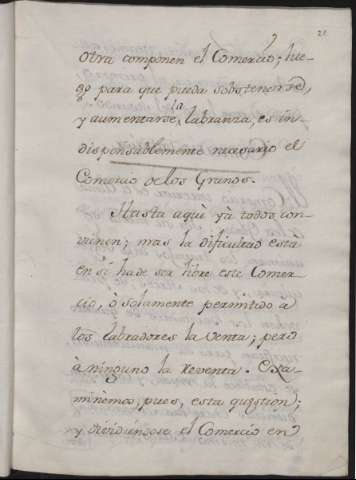 22
otra componen el Comercio; lue-
go para que pueda sobstenerse,
y aumentarse la labranza, es in-
dispensablemente necesario el
Comercio de los Granos.
Hasta aquì yà todos con-
vienen; mas la dificultad està
en si ha de ser libre este Comer-
cio, o solamente permitido a
los labradores la venta; pero
à ninguno la Reventa. Exa-
minemos, pues, esta question;
y dividiendose el Comercio en